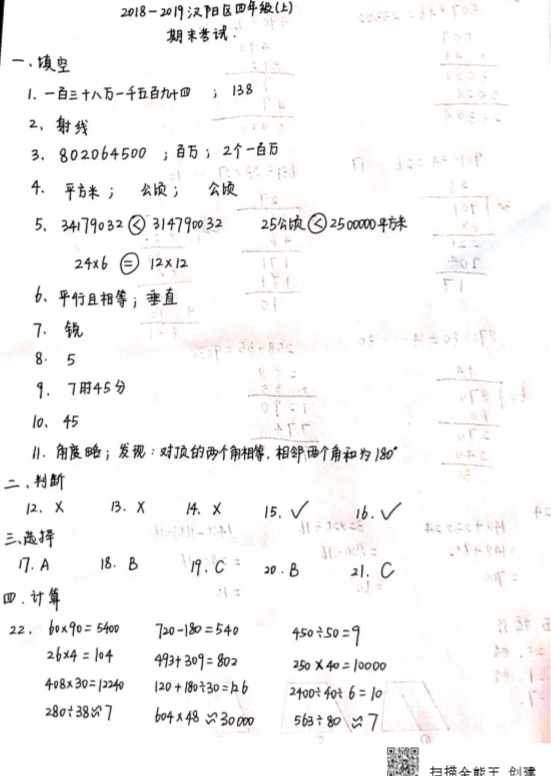 2018-2019汉阳区四年级(上)
期末考试.
一、填空
1、一百三十八万一千五百九十四 ; 138
2、射线
3、802064500 ; 百万; 2个一百万
4、平方米; 公顷; 公顷
5、34179032 < 314790032 25公顷 < 2500000平方米
24×6 = 12×12
6、平行且相等; 垂直
7、锐
8. 5
9. 7时45分
10、45
11. 角度略; 发现: 对顶的两个角相等, 相邻两个角和为180°
二、判断
12. × 13. × 14. × 15. ✓ 16. ✓
三、选择
17. A 18. B 19. C 20. B 21. C
四.计算
22. 60×90=5400 720-180=540 450÷50=9
26×4=104 493+309=802 250×40=10000
408×30=12240 120+180÷30=126 2400÷40÷6=10
280÷38≈7 604×48≈30000 563÷80≈7
扫描全能王 创建